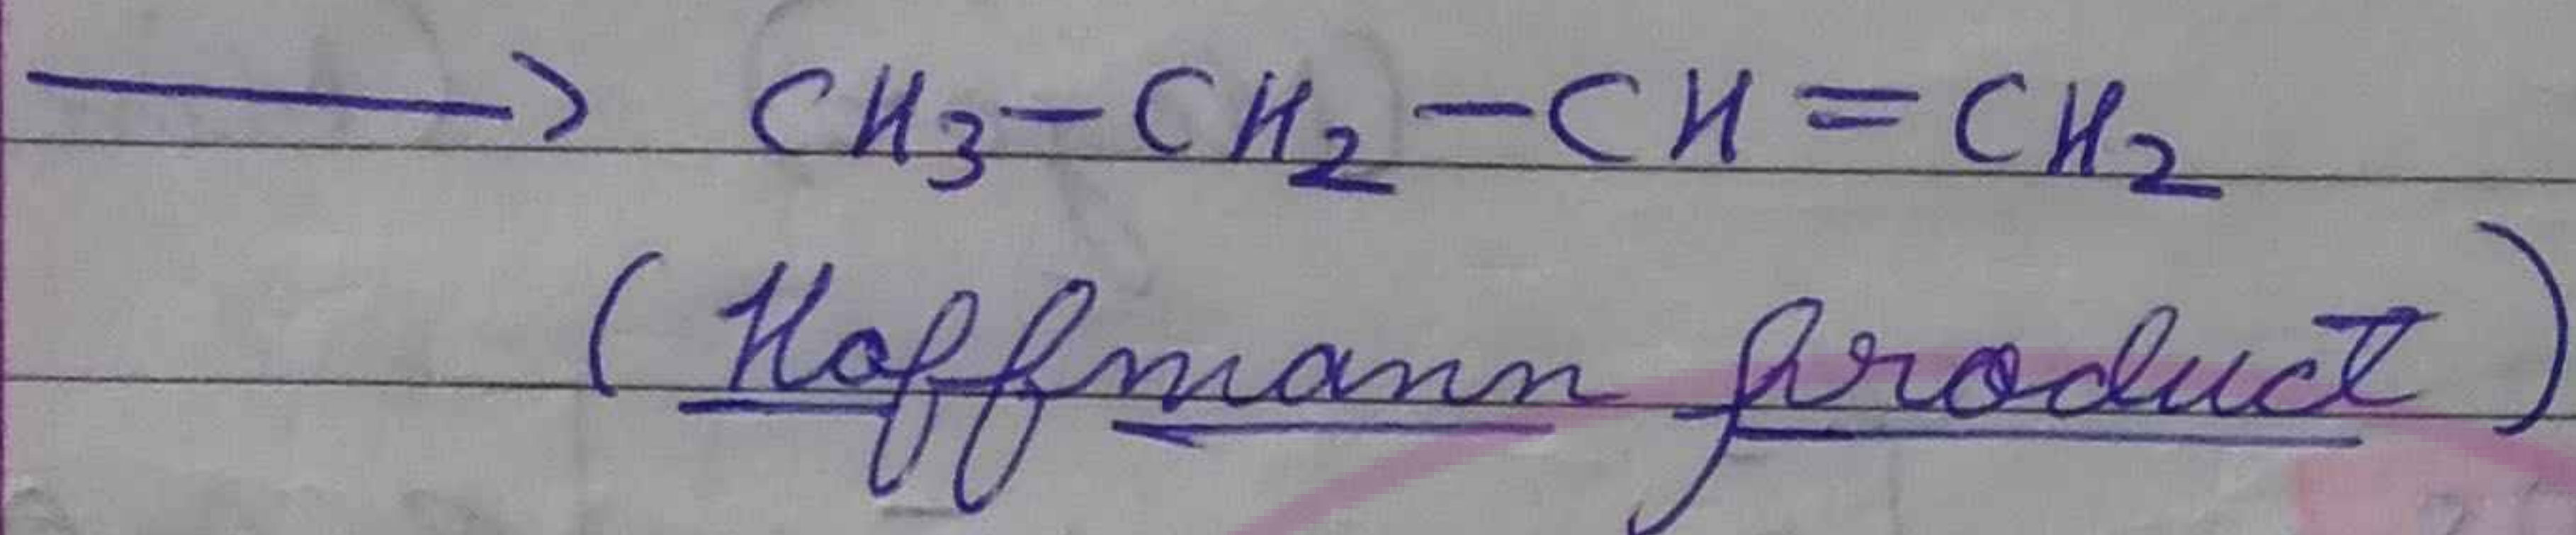 ⟶ CH₃-CH₂-CH=CH₂
(Hoffmann product)